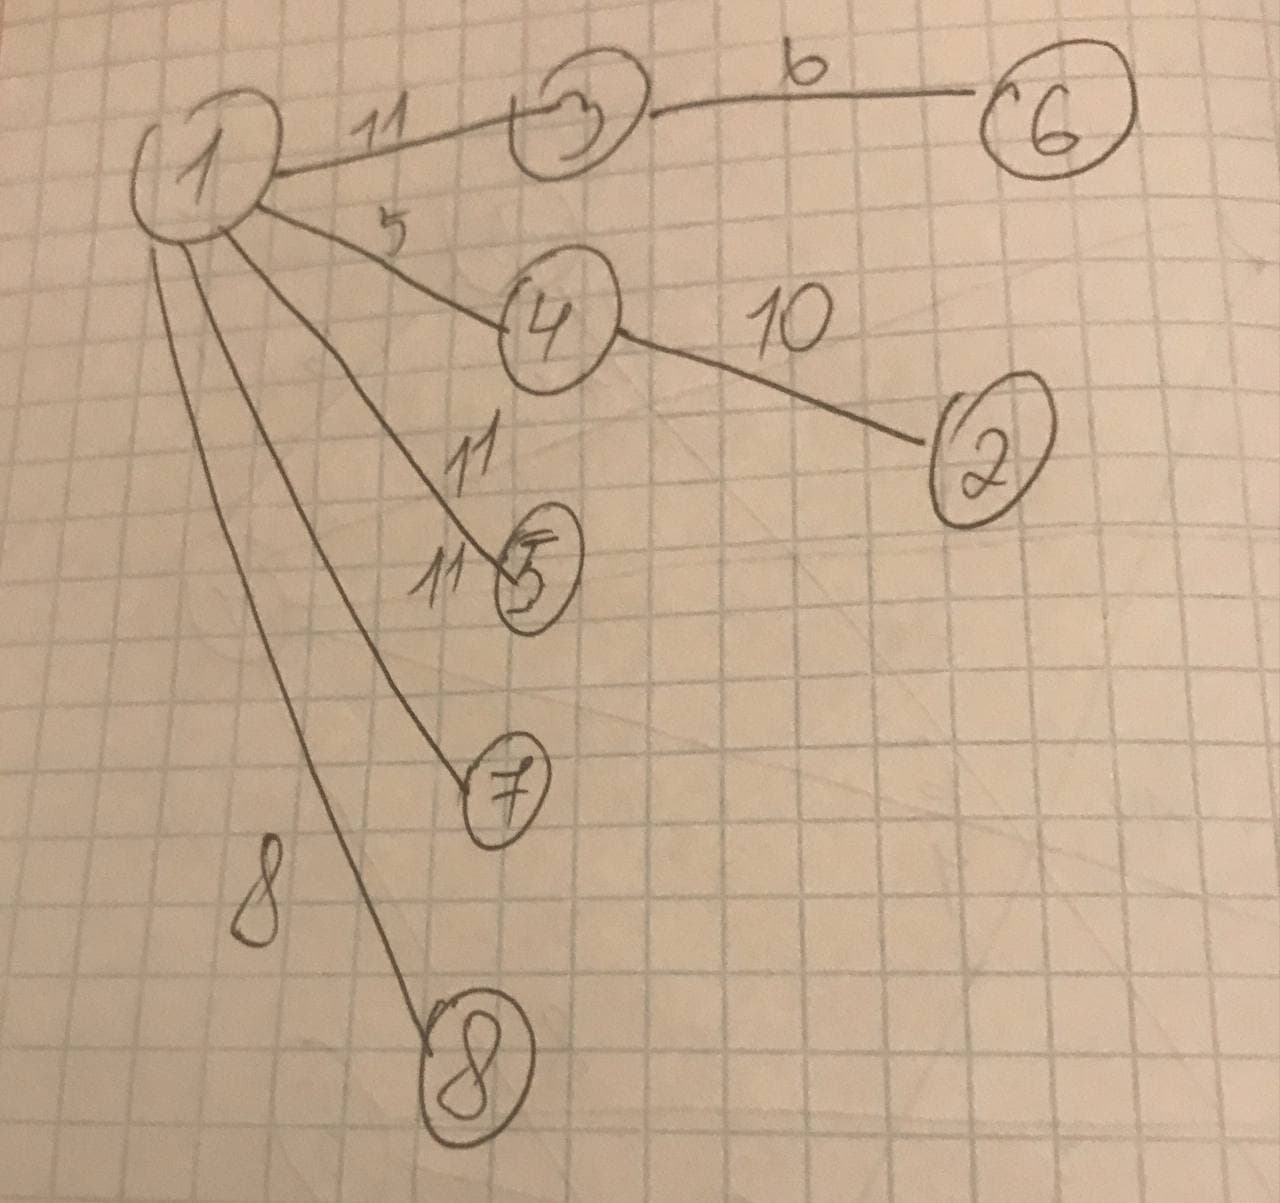 1 11 3 6 6
5 4 10 2
11 5
11 7
8 8